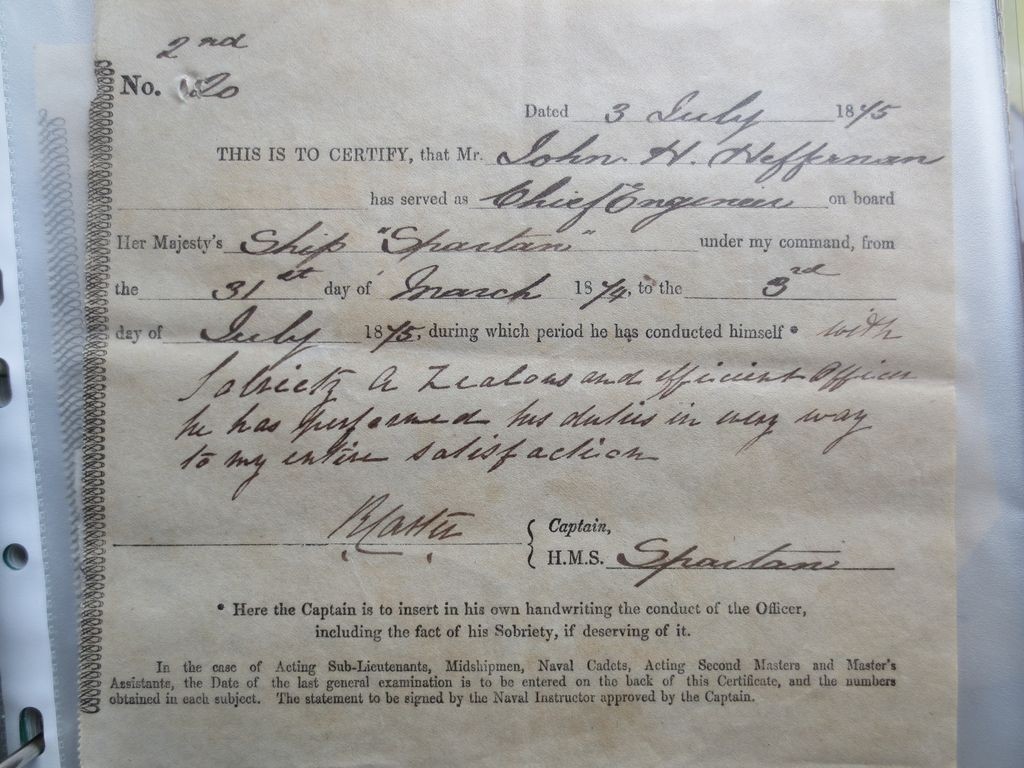 2nd
No. 20
Dated 3 July 1875
THIS IS TO CERTIFY, that Mr. John. H. Heffernan
has served as Chief Engineer on board
Her Majesty's Ship "Spartan" under my command, from
the 31st day of March 1874, to the 3rd
day of July 1875, during which period he has conducted himself * with
Sobriety A Zealous and efficient Officer
he has performed his duties in every way
to my entire satisfaction
Captain,
H.M.S. Spartan
* Here the Captain is to insert in his own handwriting the conduct of the Officer,
including the fact of his Sobriety, if deserving of it.
In the case of Acting Sub-Lieutenants, Midshipmen, Naval Cadets, Acting Second Masters and Master's
Assistants, the Date of the last general examination is to be entered on the back of this Certificate, and the numbers
obtained in each subject. The statement to be signed by the Naval Instructor approved by the Captain.